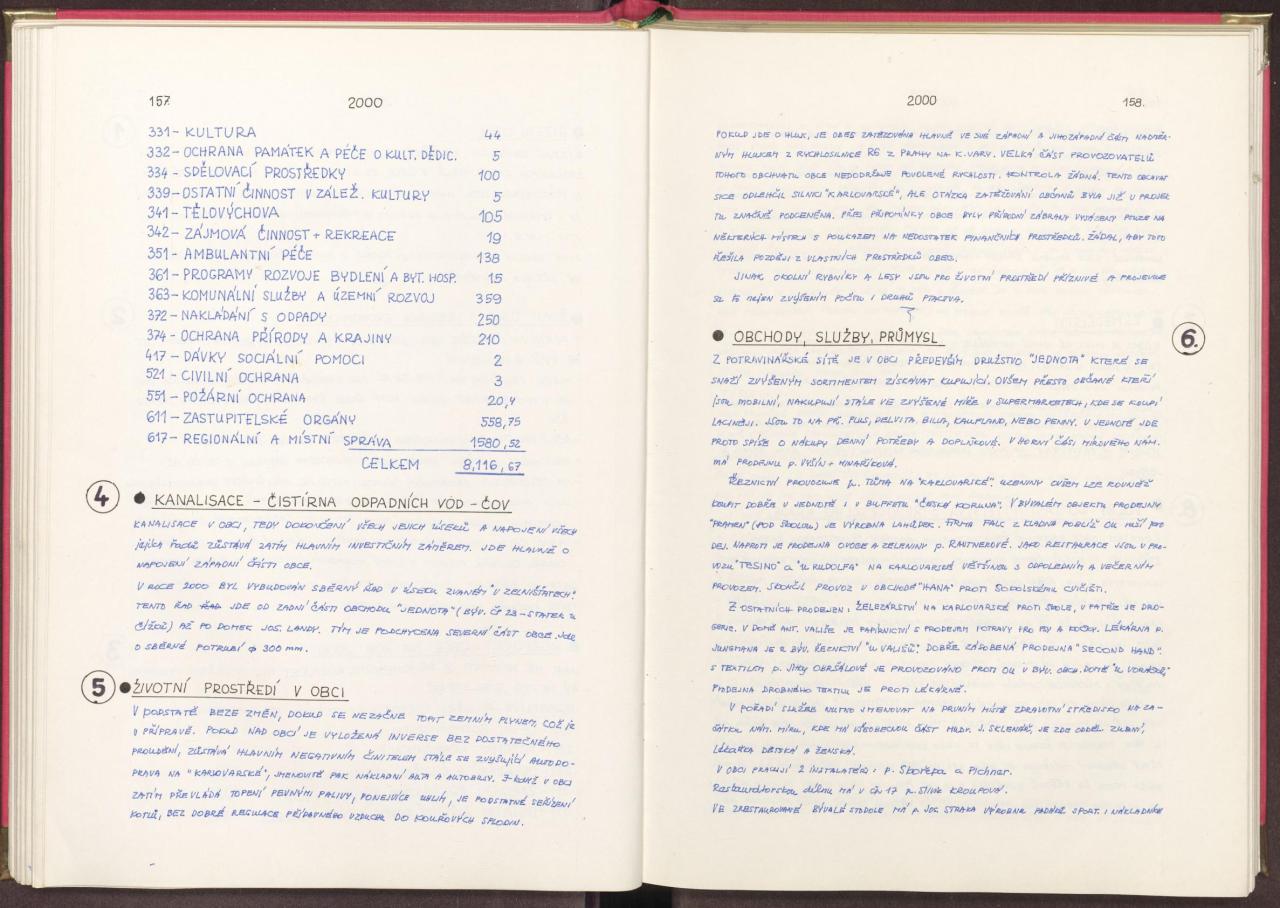 157.
2000
331- KULTURA 44
332- OCHRANA PAMÁTEK A PÉČE O KULT. DĚDIC. 5
334- SDĚLOVACÍ PROSTŘEDKY 100
339- OSTATNÍ ČINNOST V ZÁLEŽ. KULTURY 5
341- TĚLOVÝCHOVA 105
342- ZÁJMOVÁ ČINNOST + REKREACE 19
351- AMBULANTNÍ PÉČE 138
361- PROGRAMY ROZVOJE BYDLENÍ A BYT. HOSP. 15
363- KOMUNÁLNÍ SLUŽBY A ÚZEMNÍ ROZVOJ 359
372- NAKLÁDÁNÍ S ODPADY 250
374- OCHRANA PŘÍRODY A KRAJINY 210
417- DÁVKY SOCIÁLNÍ POMOCI 2
521- CIVILNÍ OCHRANA 3
551- POŽÁRNÍ OCHRANA 20,4
611- ZASTUPITELSKÉ ORGÁNY 558,75
617- REGIONÁLNÍ A MÍSTNÍ SPRÁVA 1580,52
CELKEM 8,116,67
4 ● KANALISACE - ČISTÍRNA ODPADNÍCH VÓD - ČOV
KANALISACE V OBCI, TEDY DOKONČENÍ VŠECH JEJICH ÚSEKŮ A NAPOJENÍ VŠECH
jejích řadů ZŮSTÁVÁ ZATÍM HLAVNÍM INVESTIČNÍM ZÁMĚREM. JDE HLAVNĚ O
NAPOJENÍ ZÁPADNÍ ČÁSTI OBCE.
V ROCE 2000 BYL VYBUDOVÁN SBĚRNÝ ŘAD V ÚSEKU ZVANÉM "V ZELNIŠTATECH".
TENTO ŘAD JDE OD ZADNÍ ČÁSTI OBCHODU "JEDNOTA" (BÝV. ČP 23 - STATEK U
) AŽ PO DOMEK JOS. LANDY. TÍM JE PODCHYCENA SEVERNÍ ČÁST OBCE. Jde
O SBĚRNÉ POTRUBÍ φ 300 mm.
5 ● ŽIVOTNÍ PROSTŘEDÍ V OBCI
V PODSTATĚ BEZE ZMĚN, DOKUD SE NEZAČNE TOPIT ZEMNÍM PLYNEM, COŽ je
v PŘÍPRAVĚ. POKUD NAD OBCÍ JE VYLOŽENÁ INVERSE BEZ DOSTATEČNÉHO
PROUDĚNÍ, ZŮSTÁVÁ HLAVNÍM NEGATIVNÍM ČINITELEM STÁLE SE ZVYŠUJÍCÍ AUTODO-
PRAVA NA "KARLOVARSKÉ", JMENOVITĚ PAK NÁKLADNÍ AUTA A AUTOBUSY. I když V OBCI
ZATÍM PŘEVLÁDÁ TOPENÍ PEVNÝMI PALIVY, PONEJVÍCE UHLÍM, JE PODSTATNÉ SEŘÍZENÍ
KOTLŮ, BEZ DOBRÉ REGULACE PŘÍDAVNÉHO VZDUCHU DO KOUŘOVÝCH SPLODIN.
2000
158.
POKUD JDE O HLUK, JE OBEC ZATĚŽOVÁNA HLAVNĚ VE SVÉ ZÁPADNÍ A JIHOZÁPADNÍ ČÁSTI NADMĚR-
NÝM HLUKEM Z RYCHLOSILNICE R6 Z PRAHY NA K. VARY. VELKÁ ČÁST PROVOZOVATELŮ
TOHOTO OBCHVATU OBCE NEDODRŽUJE POVOLENÉ RYCHLOSTI. KONTROLA ŽÁDNÁ. TENTO OBCHVAT
SICE ODLEHČIL SILNICI "KARLOVARSKÉ", ALE OTÁZKA ZATĚŽOVÁNÍ OBČANŮ BYLA JIŽ U PROJEK
TU ZNAČNĚ PODCENĚNA. PŘES PŘIPOMÍNKY OBCE BYLY PŘÍRODNÍ ZÁBRANY VYSÁZENY POUZE NA
NĚKTERÝCH MÍSTECH S POUKAZEM NA NEDOSTATEK FINANČNÍCH PROSTŘEDKŮ. ŽÁDAL, ABY TOTO
ŘEŠILA POZDĚJI Z VLASTNÍCH PROSTŘEDKŮ OBEC.
JINAK OKOLNÍ RYBNÍKY A LESY JSOU PRO ŽIVOTNÍ PROSTŘEDÍ PŘÍZNIVÉ A PROJEVUJE
SE TO NEJEN ZVÝŠENÍM POČTU I DRUHŮ PTACTVA.
● OBCHODY, SLUŽBY, PRŮMYSL 6.
Z POTRAVINÁŘSKÉ SÍTĚ JE V OBCI PŘEDEVŠÍM DRUŽSTVO "JEDNOTA" KTERÉ SE
SNAŽÍ ZVÝŠENÝM SORTIMENTEM ZÍSKÁVAT KUPUJÍCÍ. OVŠEM PŘESTO OBČANÉ KTEŘÍ
JSOU MOBILNÍ, NAKUPUJÍ STÁLE VE ZVÝŠENÉ MÍŘE V SUPERMARKETECH, KDE SE KOUPÍ
LACINĚJI. JSOU TO NA PŘ. PLUS, DELVITA, BILLA, KAUFLAND, NEBO PENNY. V JEDNOTĚ JDE
PROTO SPÍŠE O NÁKUPY DENNÍ POTŘEBY A DOPLŇKOVÉ. V HORNÍ ČÁSTI MÍROVÉHO NÁM.
MÁ PRODEJNU p. VYŠÍN + MINAŘÍKOVÁ.
ŘEZNICTVÍ PROVOZUJE p. TŮMA NA "KARLOVARSKÉ". UZENINY OVŠEM LZE ROVNĚŽ
KOUPIT DOBŘE V JEDNOTĚ I V BUFFETU "ČESKÁ KORUNA". V BÝVALÉM OBJEKTU PRODEJNY
"PRAMEN" (POD ŠKOLOU) JE VÝROBNA LAHŮDEK. FIRMA PALC Z KLADNA POBLÍŽ OÚ
DEJ. NAPROTI JE PRODEJNA OVOCE A ZELENINY p. RAUTNEROVÉ. JAKO RESTAURACE JSOU V PRO-
VOZU "TESINO" a "U RUDOLFA" NA KARLOVARSKÉ VĚTŠINOU S ODPOLEDNÍM A VEČERNÍM
PROVOZEM. SKONČIL PROVOZ V OBCHODĚ "HANA" PROTI SOKOLSKÉMU CVIČIŠTI.
Z OSTATNÍCH PRODEJEN: ŽELEZÁŘSTVÍ NA KARLOVARSKÉ PROTI ŠKOLE, V PATŘE JE DRO-
GERIE. V DOMĚ ANT. VALIŠE JE PAPÍRNICTVÍ S PRODEJEM POTRAVY PRO PSY A KOČKY. LÉKÁRNA p.
JUNGMANA JE V BÝV. ŘEZNICTVÍ "U VALIŠŮ". DOBŘE ZÁSOBENÁ PRODEJNA "SECOND HAND".
S TEXTILEM p. Jitky OBRŠÁLOVÉ JE PROVOZOVÁNO PROTI OÚ V BÝV. OBCH. DOMĚ
PRODEJNA DROBNÉHO TEXTILU JE PROTI LÉKÁRNĚ.
V POŘADÍ SLUŽEB NUTNO JMENOVAT NA PRVNÍM MÍSTĚ ZDRAVOTNÍ STŘEDISKO NA ZA-
ČÁTKU NÁM. MÍRU, KDE MÁ VŠEOBECNOU ČÁST MUDr. J. SKLENÁŘ, JE ZDE ODDĚL. ZUBNÍ,
Lékařka DĚTSKÁ a ŽENSKÁ.
V OBCI PRACUJÍ 2 INSTALATÉŘI: p. Skořepa a Pichner.
Restaurátorskou dílnu MÁ V ČP. 17 p. KROUPOVÝ.
VE ZRESTAUROVANÉ BÝVALÉ STODOLE MÁ p. JOS. STRAKA VÝROBNU PADÁKŮ SPORT. I NÁKLADNÍCH